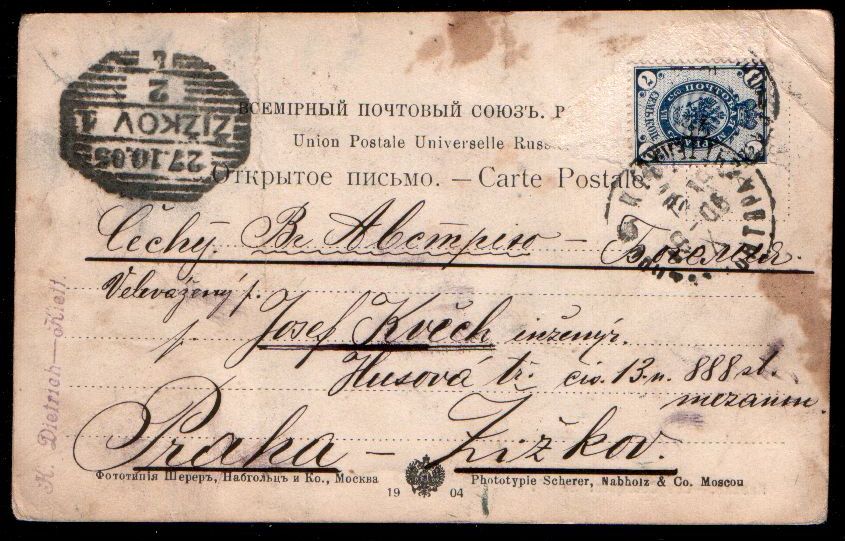 ВСЕМІРНЫЙ ПОЧТОВЫЙ СОЮЗЪ. Р
Union Postale Universelle Russ
Открытое письмо. — Carte Postale
ŽIŽKOV 1
27.10.05
2
Čechy. Въ Австрію — Богемія.
Velevážený p.
p. Josef Kvěch inženýr.
Husová tř. čis. 13.n. 888 st.
mezanin.
Praha — Žižkov.
K. Dietrich — Kieff
Фототипія Шереръ, Набгольцъ и Ко., Москва
1904
Phototypie Scherer, Nabholz & Co. Moscou